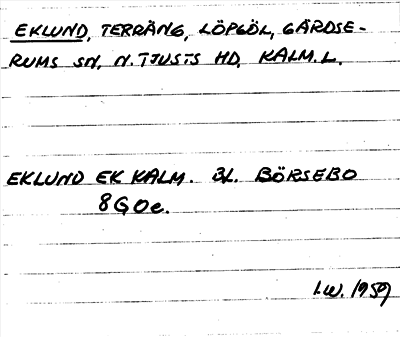 EKLUND, TERRÄNG, LÖPGÖL, GÄRDSE-
RUMS SN, N. TJUSTS HD, KALM. L.
EKLUND EK KALM. BL. BÖRSEBO
8GOe.
I.W. 1959